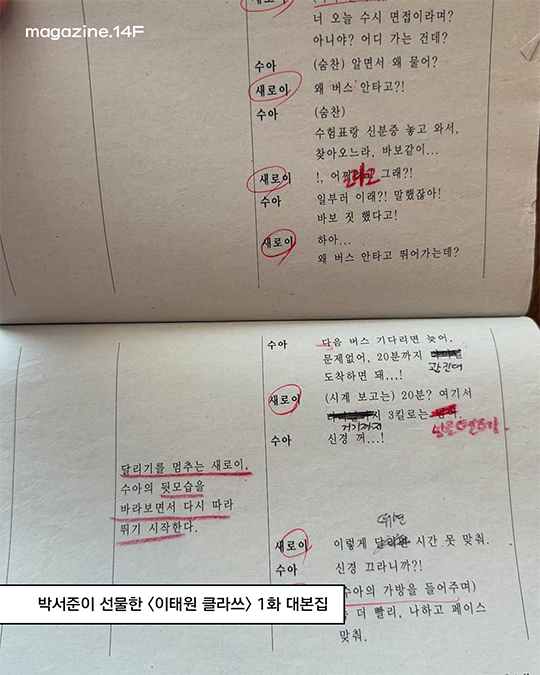 magazine.14F
새로이
너 오늘 수시 면접이라며?
아니야? 어디 가는 건데?
수아 (숨찬) 알면서 왜 물어?
새로이 왜 버스 안타고?!
수아 (숨찬)
수험표랑 신분증 놓고 와서,
찾아오느라, 바보같이...
새로이 !, 어쩌라고 그래?!
수아 일부러 이래?! 말했잖아!
바보 짓 했다고!
새로이 하아...
왜 버스 안타고 뛰어가는데?
수아 다음 버스 기다리면 늦어.
문제없어, 20분까지
도착하면 돼...!
새로이 (시계 보고는) 20분? 여기서
거기까지 3킬로는
수아 신경 꺼...!
달리기를 멈추는 새로이.
수아의 뒷모습을
바라보면서 다시 따라
뛰기 시작한다.
뛰면
새로이 이렇게 시간 못 맞춰.
수아 신경 끄라니까?!
수아의 가방을 들어주며)
더 빨리, 나하고 페이스
맞춰.
박서준이 선물한 <이태원 클라쓰> 1화 대본집